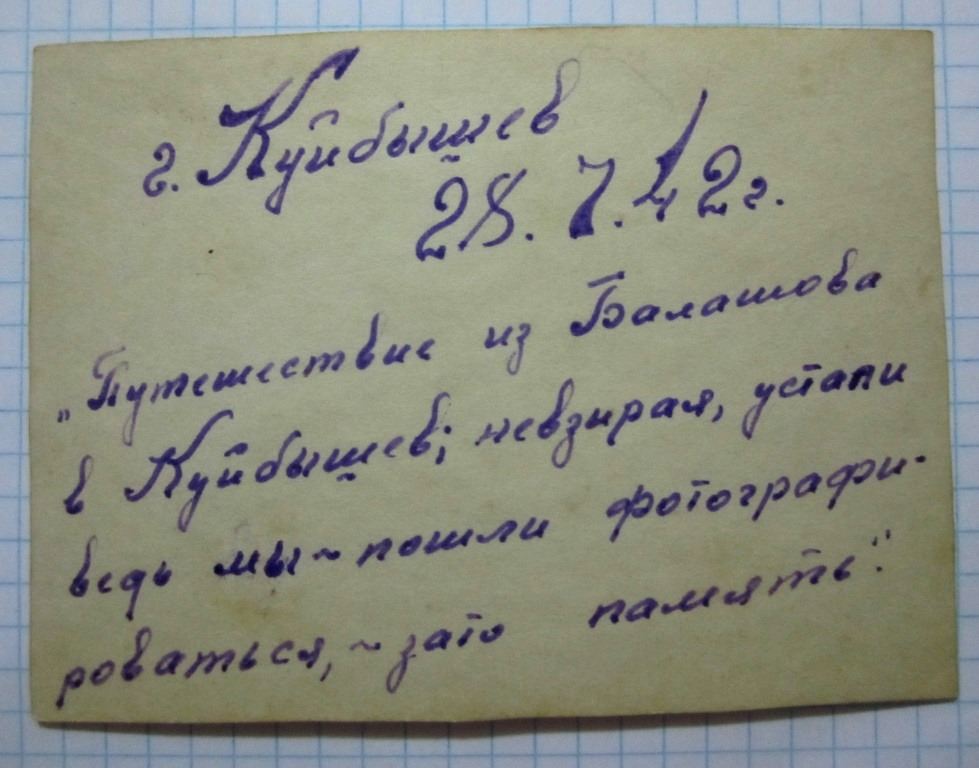 г. Куйбышев
28.7.42 г.
„Путешествие из Балашова
в Куйбышев; невзирая, устали
ведь мы ~ пошли фотографи-
роваться, ~ зато память“.